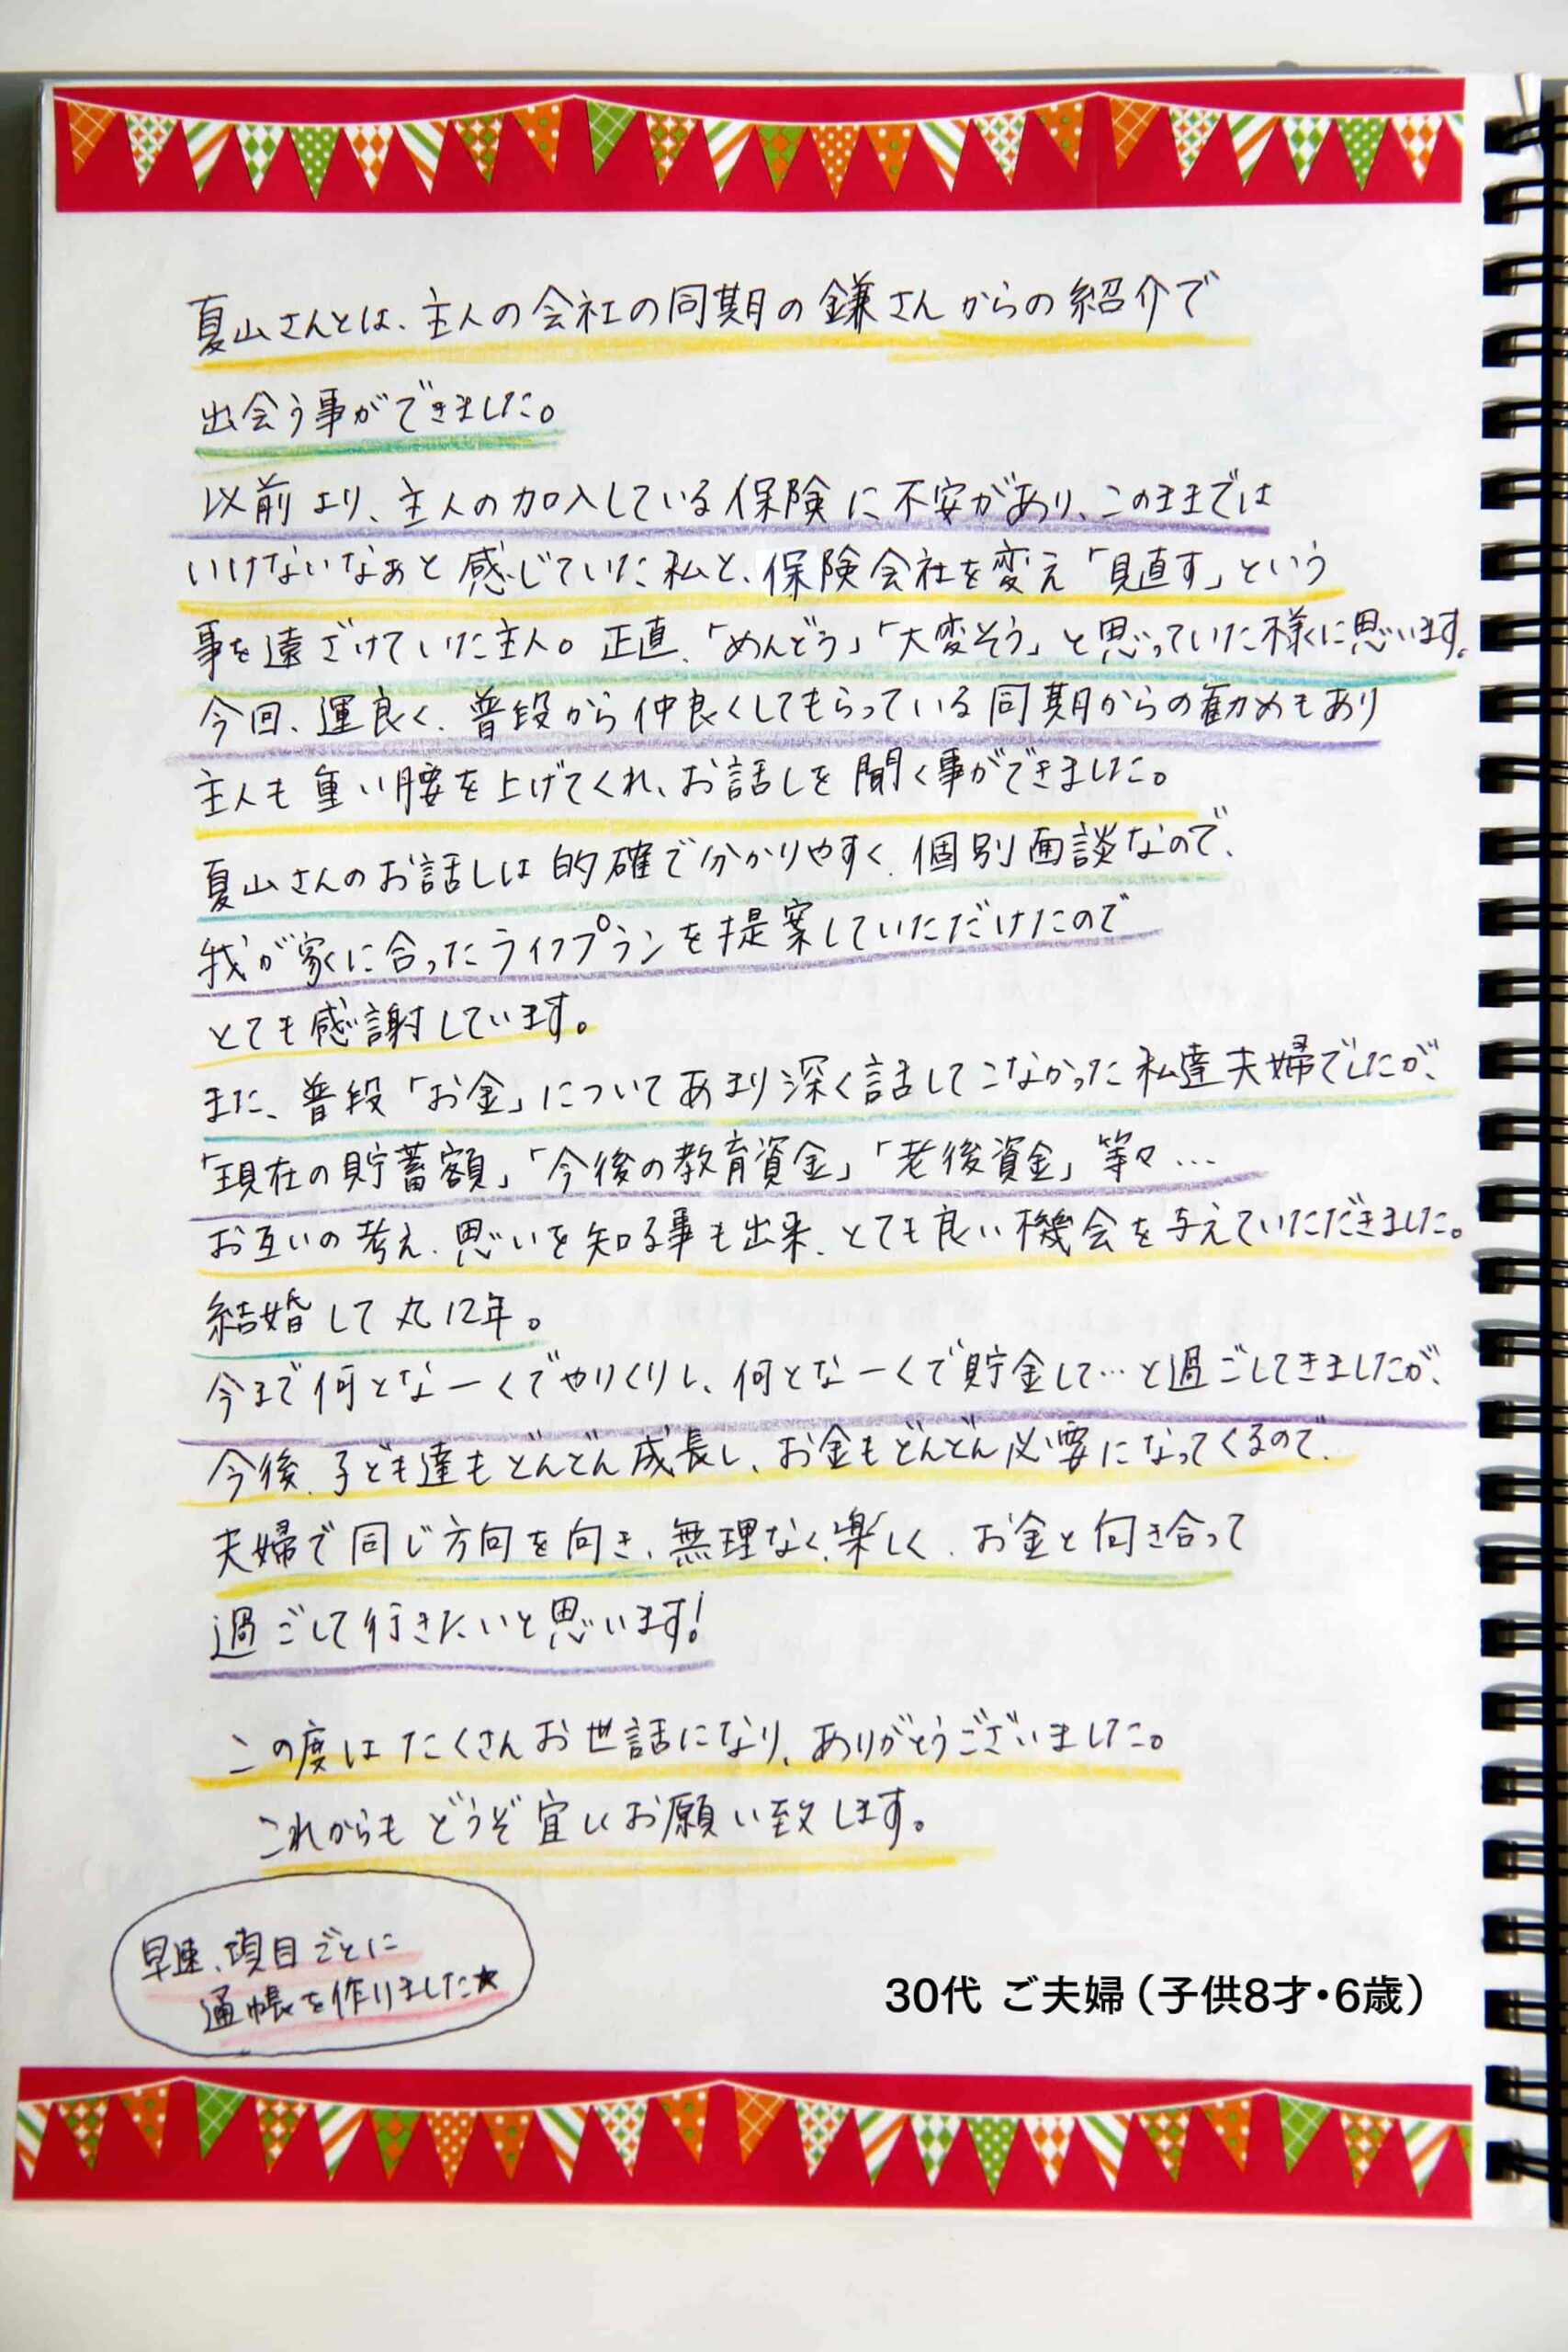 夏山さんとは、主人の会社の同期の鎌さんからの紹介で
出会う事ができました。
以前より、主人の加入している保険に不安があり、このままでは
いけないなぁと感じていた私と、保険会社を変え「見直す」という
事を遠ざけていた主人。正直、「めんどう」「大変そう」と思っていた様に思います。
今回、運良く、普段から仲良くしてもらっている同期からの勧めもあり
主人も重い腰を上げてくれ、お話しを聞く事ができました。
夏山さんのお話しは的確で分かりやすく、個別面談なので、
我が家に合ったライフプランを提案していただけたので
とても感謝しています。
また、普段「お金」についてあまり深く話してこなかった私達夫婦でしたが、
「現在の貯蓄額」「今後の教育資金」「老後資金」等々…
お互いの考え、思いを知る事も出来、とても良い機会を与えていただきました。
結婚して丸12年。
今まで何となーくでやりくりし、何となーくで貯金して…と過ごしてきましたが、
今後、子ども達もどんどん成長し、お金もどんどん必要になってくるので、
夫婦で同じ方向を向き、無理なく、楽しく、お金と向き合って
過ごして行きたいと思います!
この度はたくさんお世話になり、ありがとうございました。
これからもどうぞ宜しくお願い致します。
早速、項目ごとに
通帳を作りました★
30代 ご夫婦（子供8才・6歳）